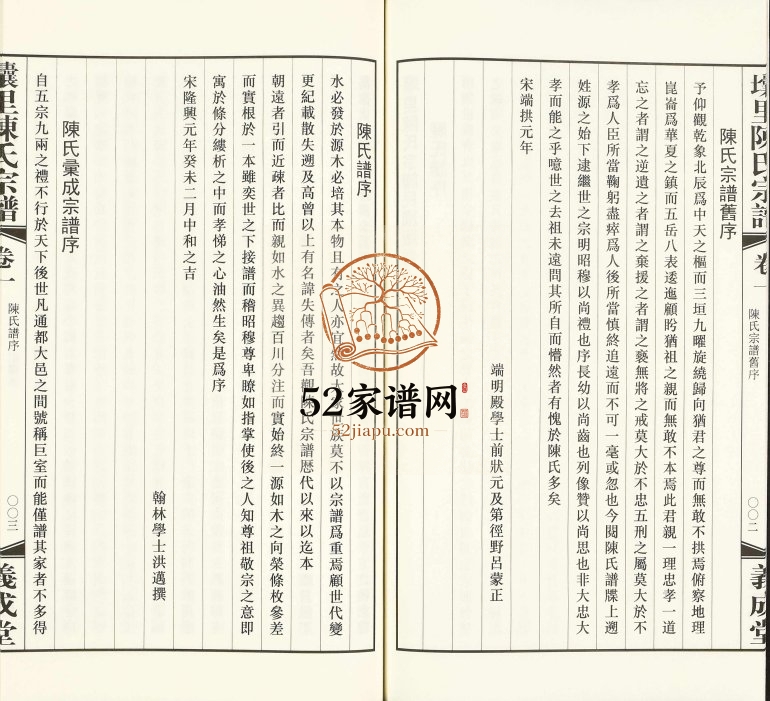 壤里陳氏宗譜
卷一
陳氏宗譜舊序
〇〇二
義成堂
陳氏宗譜舊序
予仰觀乾象北辰爲中天之樞而三垣九曜旋繞歸向猶君之尊而無敢不拱焉俯察地理
崑崙爲華夏之鎮而五岳八表逶迤顧盻猶祖之親而無敢不本焉此君親一理忠孝一道
忘之者謂之逆遺之者謂之棄援之者謂之褻無將之戒莫大於不忠五刑之屬莫大於不
孝爲人臣所當鞠躬盡瘁爲人後所當慎終追遠而不可一毫或忽也今閱陳氏譜牒上遡
姓源之始下逮繼世之宗明昭穆以尚禮也序長幼以尚齒也列像贊以尚思也非大忠大
孝而能之乎噫世之去祖未遠問其所自而懵然者有愧於陳氏多矣
宋端拱元年
端明殿學士前狀元及第徑野呂蒙正
陳氏譜序
水必發於源木必培其本物且有之人亦宜然故大家世族莫不以宗譜爲重焉顧世代變
更紀載散失遡及高曾以上有名諱失傳者矣吾觀陳氏宗譜歷代以來以迄本
朝遠者引而近疎者比而親如水之異趨百川分注而實始終一源如木之向榮條枚參差
而實根於一本雖奕世之下接譜而稽昭穆尊卑瞭如指掌使後之人知尊祖敬宗之意即
寓於條分縷析之中而孝悌之心油然生矣是爲序
宋隆興元年癸未二月中和之吉
翰林學士洪邁撰
陳氏彙成宗譜序
自五宗九兩之禮不行於天下後世凡通都大邑之間號稱巨室而能僅譜其家者不多得
壤里陳氏宗譜
卷一
陳氏譜序
〇〇三
義成堂
52家谱网
52jiapu.com